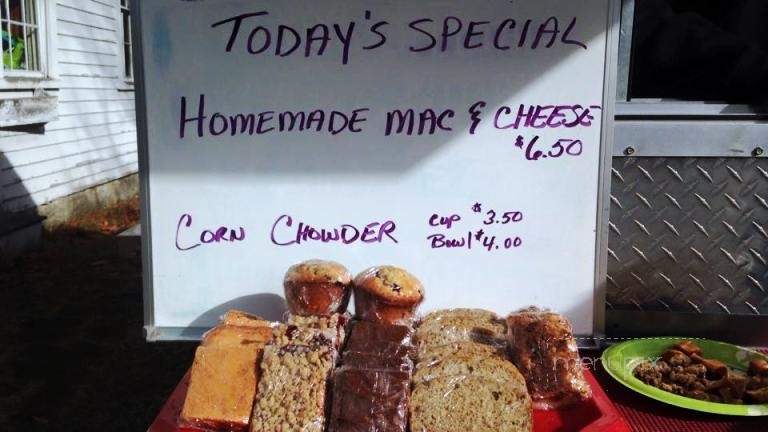 TODAY'S SPECIAL
HOMEMADE MAC & CHEESE
$6.50
CORN CHOWDER CUP $3.50
BOWL $4.00